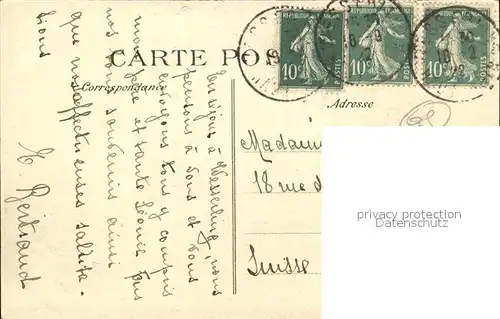 CARTE POS
Correspondance
Adresse
REPUBLIQUE FRANCAISE
10c
POSTES
REPUBLIQUE FRANCAISE
10c
POSTES
REPUBLIQUE FRANCAISE
10c
POSTES
En séjour à Wesserling, nous
pensons à vous et vous
envoyons tous y compris
mon père et tante Léonie
nos bons souvenirs ainsi
que nos affectueuses saluta-
tions
Bertrand
Madame
18 rue d
Suisse
privacy protection
Datenschutz